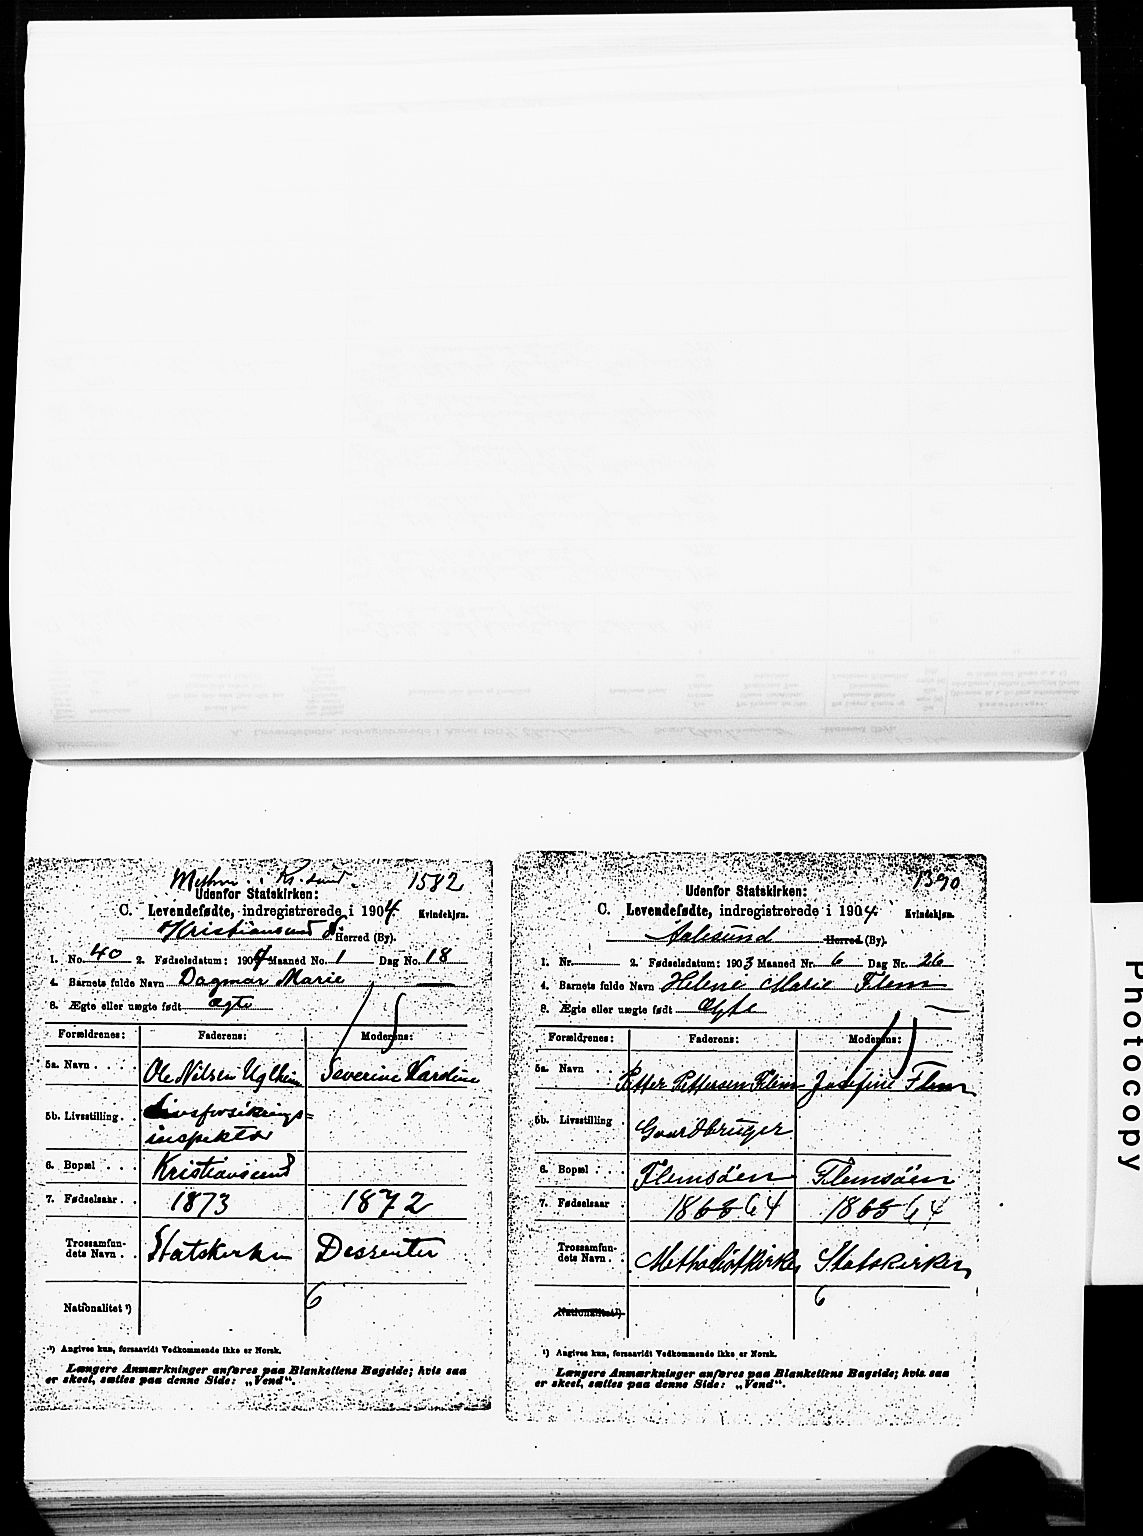 1582
Udenfor Statskirken:
C. Levendefødte, indregistrerede i 1904. Kvindekjøn.
Kristianssund N Herred (By).
1. No. 40 2. Fødselsdatum: 1904 Maaned No. 1 Dag No. 18
4. Barnets fulde Navn Dagmar Marie
8. Ægte eller uægte født Ægte
Forældrenes: Faderens: Moderens:
5a. Navn . . . Ole Nilsen Uglheim Severine
5b. Livsstilling. . Livsforsikrings=
inspektør
6. Bopæl . . . Kristianssund
7. Fødselsaar . . 1873 1872
Trossamfun-
dets Navn . . Statskirken Dessenter
Nationalitet ¹)
6
¹) Angives kun, forsaavidt Vedkommende ikke er Norsk.
Længere Anmærkninger anføres paa Blankettens Bagside; hvis saa
er skeet, sættes paa denne Side: „Vend“.
1390
Udenfor Statskirken:
C. Levendefødte, indregistrerede i 1904. Kvindekjøn.
Aalesund Herred (By).
1. Nr. 2. Fødselsdatum: 1903 Maaned Nr. 6 Dag Nr. 26
4. Barnets fulde Navn Helene Marie Flem
8. Ægte eller uægte født Ægte
Forældrenes: Faderens: Moderens:
5a. Navn . . . Petter Pettersen Flem Josefine Flem
5b. Livsstilling . Gaardbruger
6. Bopæl . . . Flemsöen Flemsöen
7. Fødselsaar . 64 64
Trossamfun-
dets Navn . . Methodistkirken Statskirken
Nationalitet ¹)
6
¹) Angives kun, forsaavidt Vedkommende ikke er Norsk.
Længere Anmærkninger anføres paa Blankettens Bagside; hvis saa
er skeet, sættes paa denne Side: „Vend“.
Photocopy